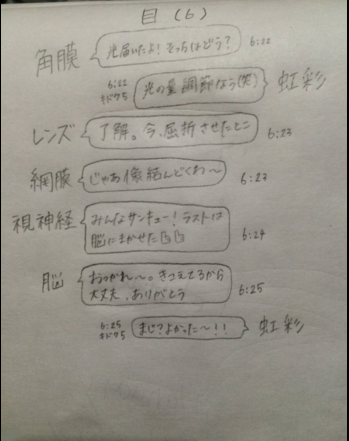 目(6)
角膜 光届いたよ!そっちはどう? 6:22
6:22 光の量調節なう(笑) 虹彩
キドク5
レンズ 了解。今、屈折させたとこ 6:23
網膜 じゃあ像結んどくわ〜 6:23
視神経 みんなサンキュー!ラストは
脳にまかせた 6:24
脳 おつかれ〜。きこえてるから
大丈夫、ありがとう 6:25
6:25 まじ?よかった〜!! 虹彩
キドク5